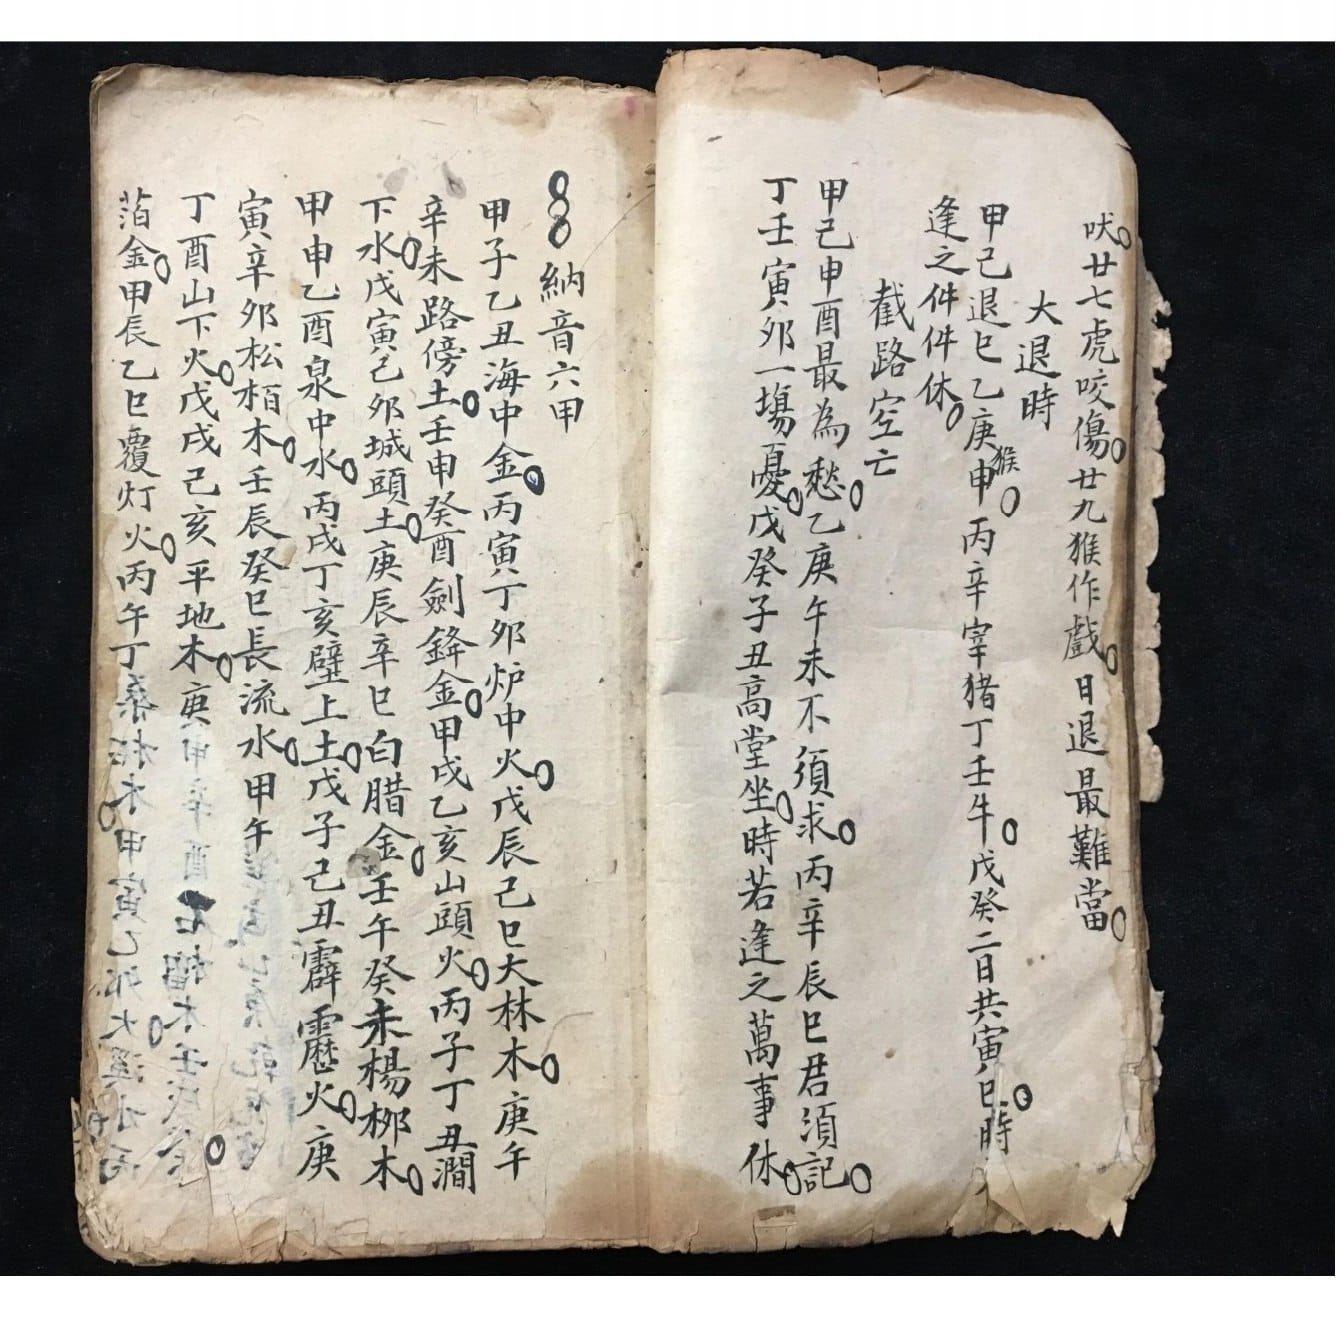 吠廿七虎咬傷廿九猴作戲日退最難當
大退時
甲己退巳乙庚申猴丙辛宰猪丁壬牛戊癸二日共寅巳時
逢之件件休
截路空亡
甲己申酉最為愁乙庚午未不須求丙辛辰巳君須記
丁壬寅夘一塲憂戊癸子丑高堂坐時若逢之萬事休
納音六甲
甲子乙丑海中金丙寅丁夘炉中火戊辰己巳大林木庚午
辛未路傍土壬申癸酉劍鋒金甲戌乙亥山頭火丙子丁丑澗
下水戊寅己夘城頭土庚辰辛巳白腊金壬午癸未楊柳木
甲申乙酉泉中水丙戌丁亥壁上土戊子己丑霹靂火庚
寅辛夘松栢木壬辰癸巳長流水甲午
丁酉山下火戊戌己亥平地木庚
箔金甲辰乙巳覆灯火丙午丁